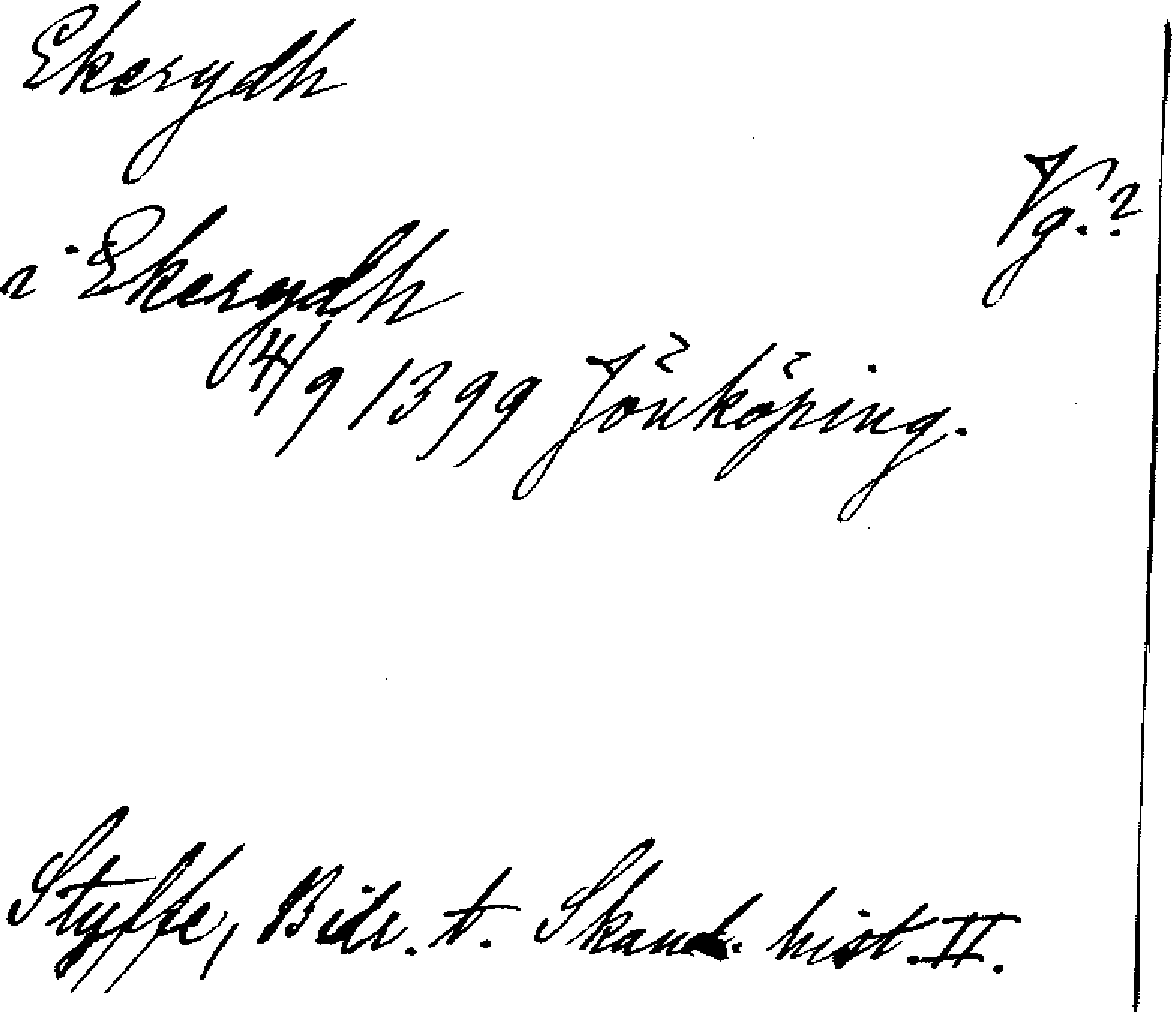 Ekerydh
Vg.?
i Ekerydh
4/9 1399 Jönköping.
Styffe, Bidr. t. Skand. hist. II.